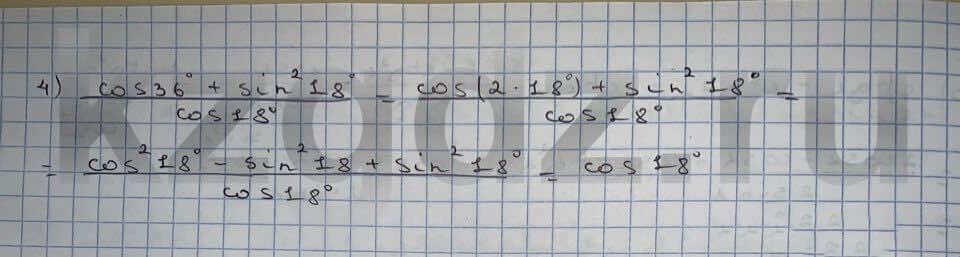 4) (cos36° + sin²18°)/(cos18°) = (cos(2·18°) + sin²18°)/(cos18°) =
= (cos²18° - sin²18 + sin²18°)/(cos18°) = cos18°
kzgdz.ru